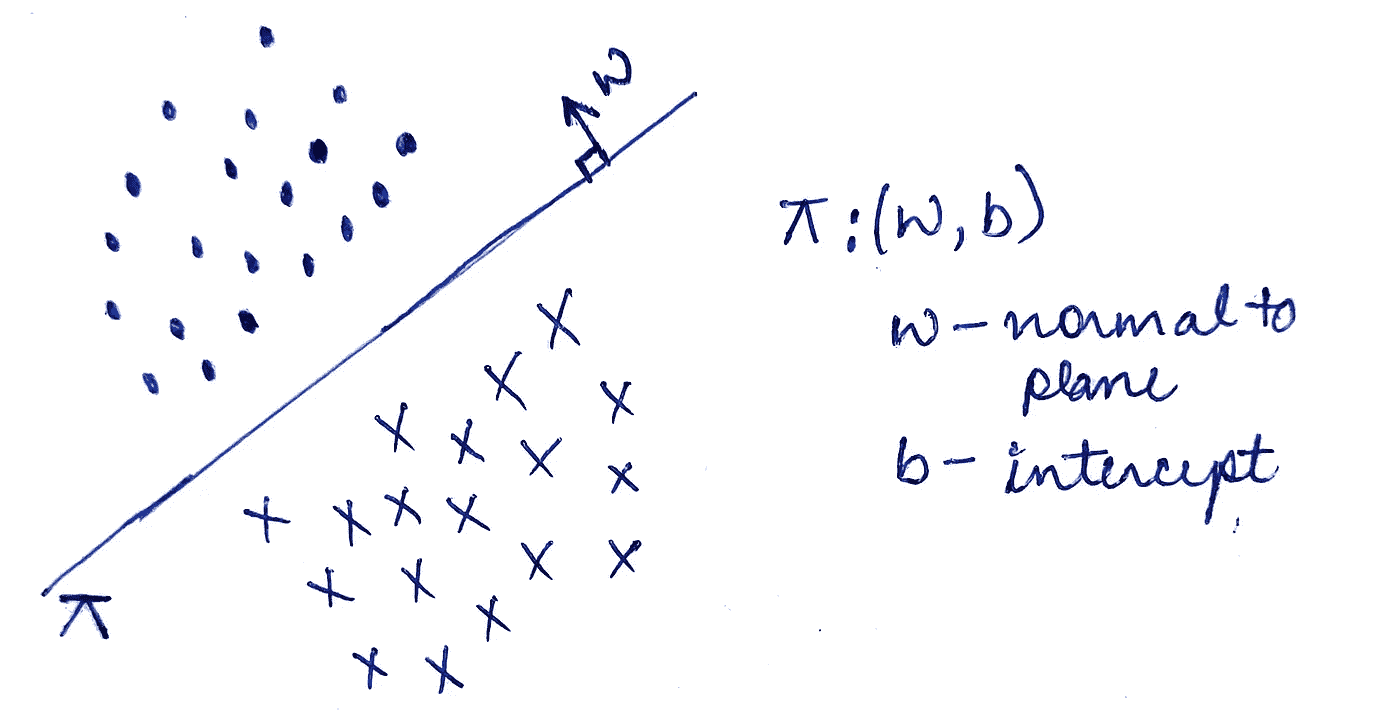 w
π : (w, b)
w - normal to
plane
b - intercept
π